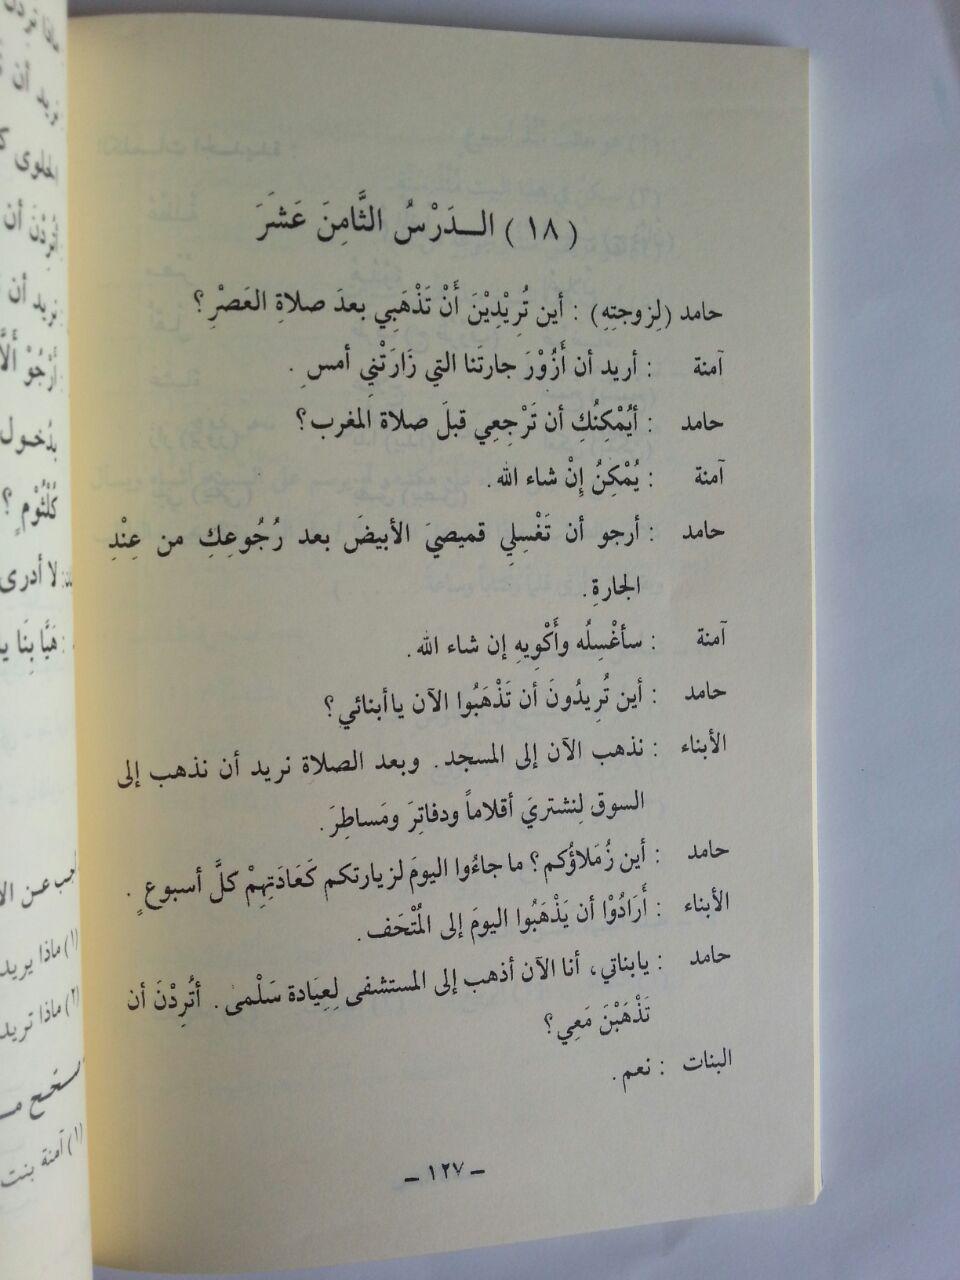 (١٨) الــدَرْسُ الثَّامِنَ عَشَرَ
حامد (لِزوجتِهِ) : أين تُرِيْدِيْنَ أَنْ تَذْهَبِي بعدَ صلاةِ العَصْرِ؟
آمنة : أريد أن أَزُوْرَ جارتَنا التي زَارَتْني أمسِ .
حامد : أيُمْكِنُكِ أن تَرْجِعِي قبلَ صلاة المغرب؟
آمنة : يُمْكِنُ إِنْ شاء الله.
حامد : أرجو أن تَغْسلِي قميصيَ الأبيضَ بعد رُجُوعِكِ من عِنْدِ
الجارةِ.
آمنة : سأغْسِلُه وأَكْوِيهِ إن شاء الله.
حامد : أين تُرِيدُونَ أن تَذْهَبُوا الآن ياأبنائي؟
الأبناء : نذهب الآن إلى المسجد. وبعد الصلاة نريد أن نذهب إلى
السوق لِنشتريَ أقلاماً ودفاتِرَ ومَساطِرَ.
حامد : أين زُمَلاؤُكم؟ ما جاءُوا اليومَ لزيارتكم كَعَادَتِهِمْ كلَّ أسبوعٍ .
الأبناء : أَرَادُوْا أن يَذْهَبُوا اليومَ إلى المُتْحَف.
حامد : يابناتي، أنا الآن أذهب إلى المستشفى لِعِيَادة سَلْمىٰ. أتُرِدْنَ أن
تَذْهَبْنَ مَعِي؟
البنات : نعم.
– ١٢٧ –
ماذا تريد
الحلوى
أَتُرِدْنَ أن
نريد أن
أَرْجُوْ أَلَّا
بدُخول
كُلْثُوْمٍ؟
لا أدرى
: هَيَّا بِنَا
أجب عن
(١) ماذا يريد
(٢) ماذا تريد
(١) آمنة بنت